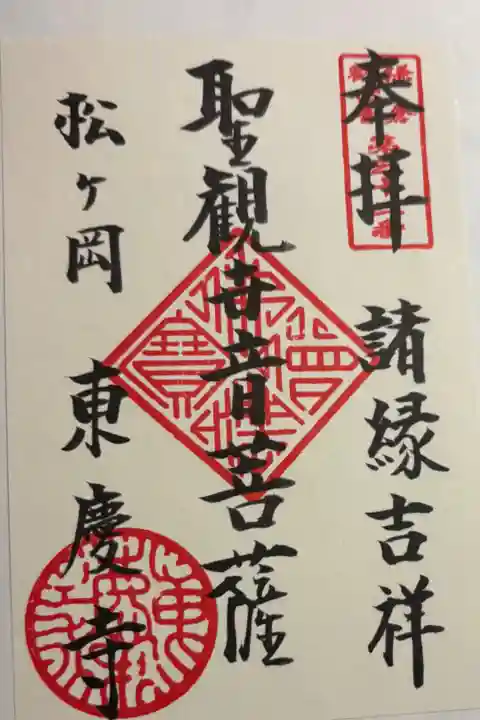 奉拝 諸縁吉祥
聖観世音菩薩
松ヶ岡 東慶寺
佛法僧寶